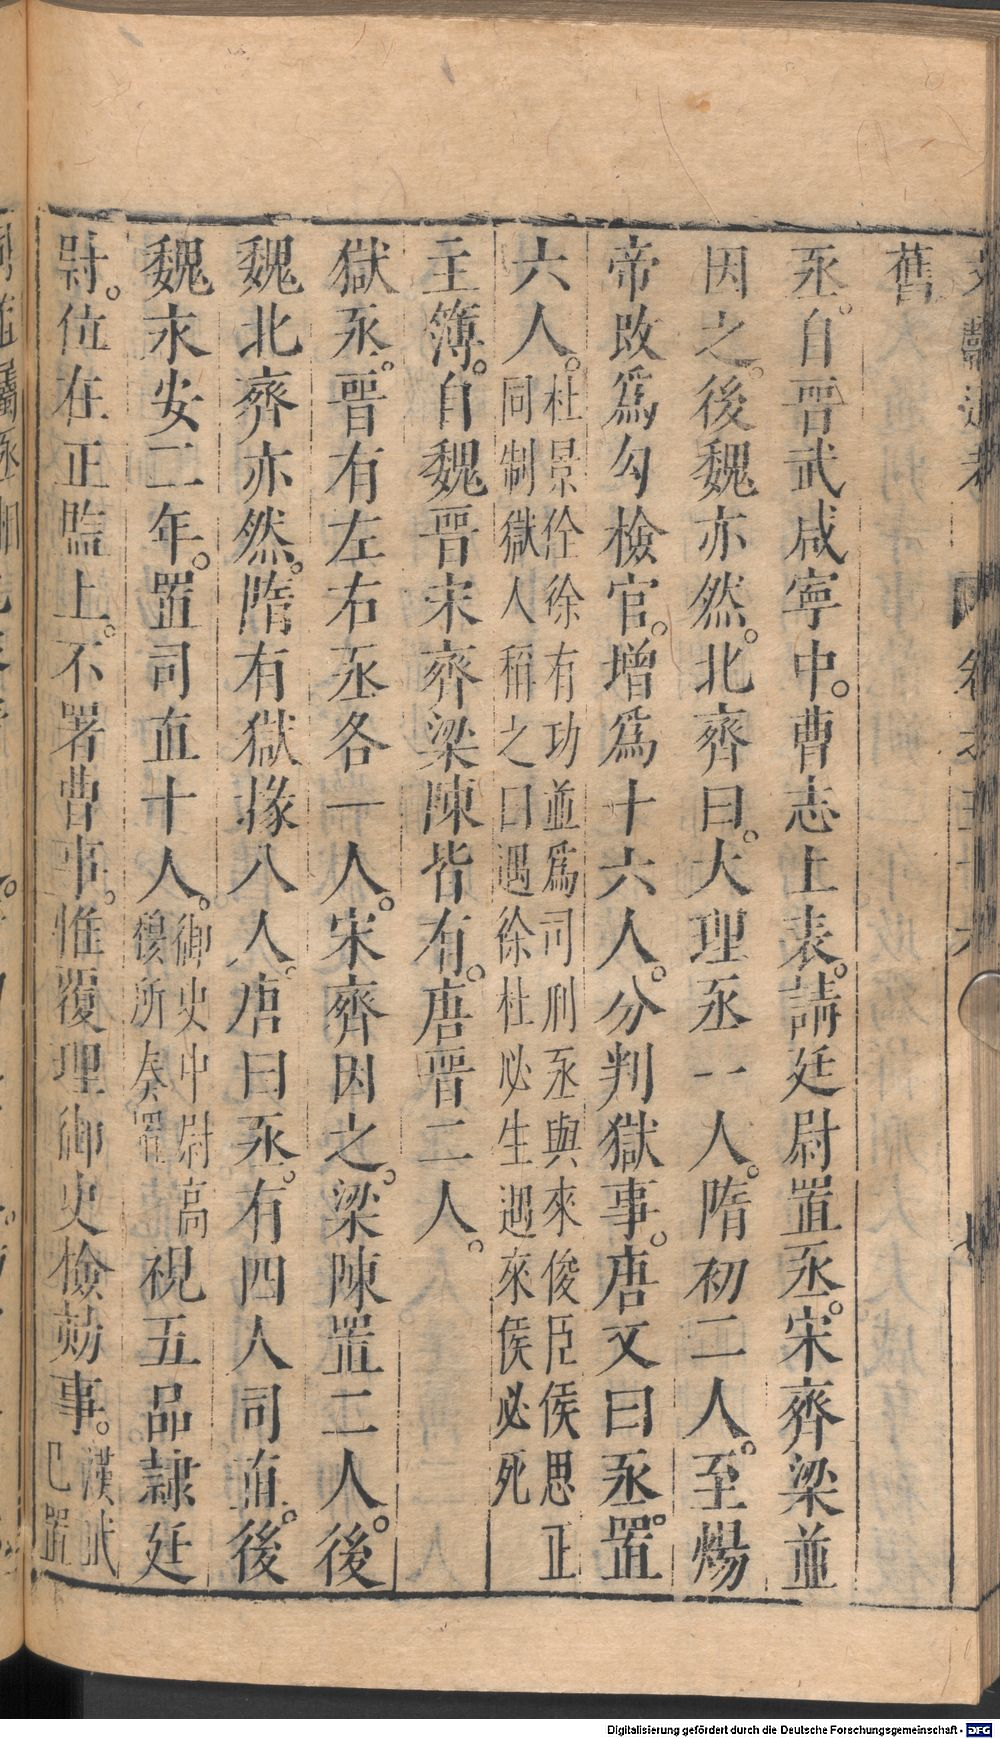 文獻通考 卷之五十六
舊
丞。自晉武咸寧中。曹志上表。請廷尉置丞。宋齊梁並
因之。後魏亦然。北齊曰。大理丞一人。隋初二人。至煬
帝改爲勾檢官。增爲十六人。分判獄事。唐文曰丞。置
六人。杜景佺徐有功並爲司刑丞與來俊臣侯思正
同制獄人稱之曰遇徐杜必生遇來侯必死
主簿。自魏晉宋齊梁陳皆有。唐晉二人。
獄丞。晉有左右丞各一人。宋齊因之。梁陳置二人。後
魏北齊亦然。隋有獄掾八人。唐曰丞。有四人司直。後
魏永安二年。置司直十人。御史中尉高
穆所奏置視五品隸廷
尉。位在正監上。不署曹事。惟覆理御史檢劾事。漢武
已置
Digitalisierung gefördert durch die Deutsche Forschungsgemeinschaft - DFG